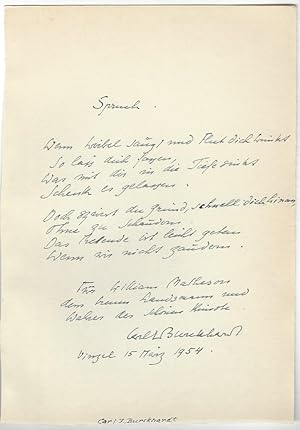 Spruch.
Wenn Wirbel saugt und Flut dich
So lass dich fassen,
Was mit dir in die Tiefe sinkt
Schenk es gelassen.
Doch spürst du Grund, schnell, dich hinan
Ohne zu schaudern.
Das Rettende ist leicht getan
Wenn wir nicht zaudern.
Für William Matheson
dem treuen Landsmann und
der schönen Künste.
Carl J Burckhardt
Vinzel 15 März 1954.
Carl J. Burckhardt